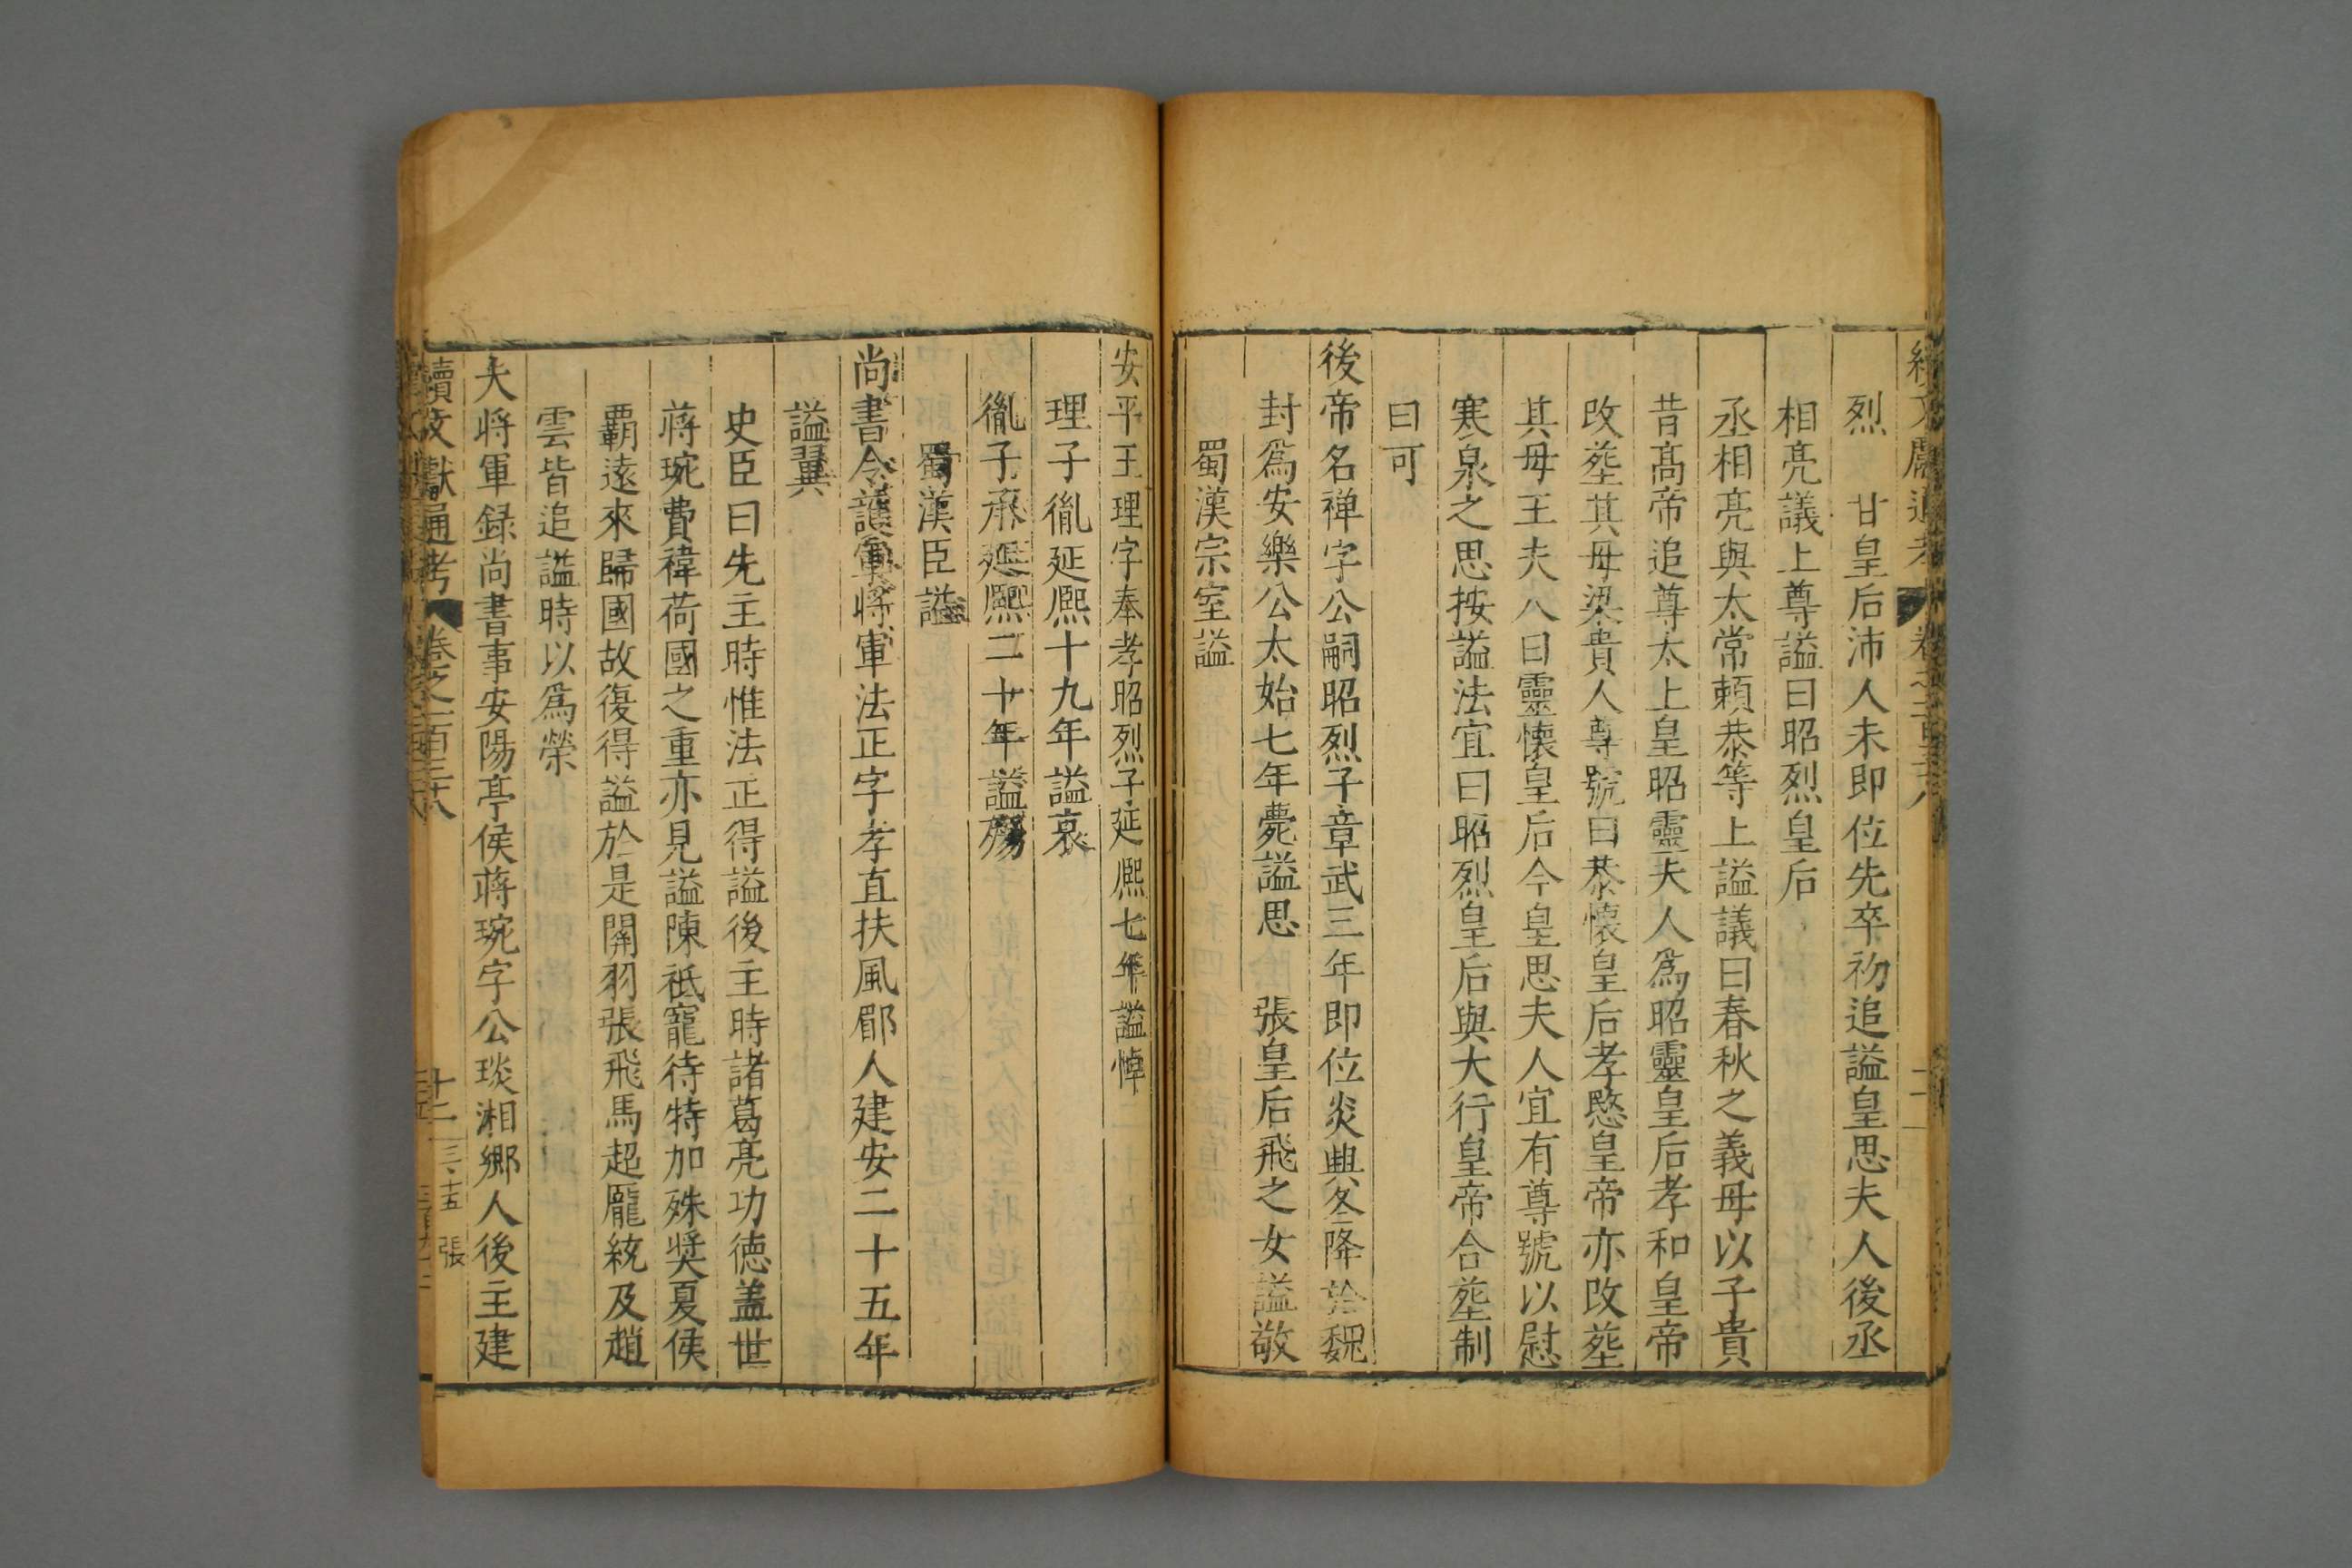 烈　甘皇后沛人未即位先卒初追謚皇思夫人後丞
相亮議上尊謚曰昭烈皇后
丞相亮與太常賴恭等上謚議曰春秋之義母以子貴
昔髙帝追尊太上皇昭靈夫人爲昭靈皇后孝和皇帝
改塟其母梁貴人尊號曰恭懷皇后孝愍皇帝亦改塟
其母王夫人曰靈懷皇后今皇思夫人宜有尊號以慰
寒泉之思按謚法宜曰昭烈皇后與大行皇帝合塟制
曰可
後帝名禅字公嗣昭烈子章武三年即位炎興冬降於魏
封爲安樂公太始七年薨謚思　張皇后飛之女謚敬
蜀漢宗室謚
安平王理字奉孝昭烈子延熈七年謚悼
理子胤延熈十九年謚哀
胤子承延熈二十年謚殤
蜀漢臣謚
尚書令護軍將軍法正字孝直扶風郿人建安二十五年
謚翼
史臣曰先主時惟法正得謚後主時諸葛亮功德盖世
蔣琬費禕荷國之重亦見謚陳祗寵待特加殊奬夏侯
覇遠來歸國故復得謚於是關羽張飛馬超龐統及趙
雲皆追謚時以爲榮
大將軍録尚書事安陽亭侯蔣琬字公琰湘鄉人後主建
續文獻通考　卷之一百三十八　十二　三十五　張